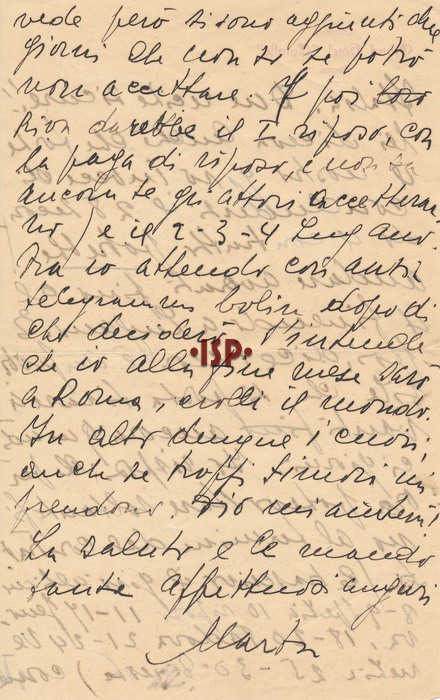 vede però si sono aggiunti due
giorni che non so se potrò
non accettare. E poi loro
Riva darebbe il I riposo, con
la paga di riposo, (e non so
ancora se gli attori accetteran
no) e il 2-3-4 Lugano.
Ma io attendo con ansia
telegramma dopo di
che deciderò. S'intende
·TSP·
che io alla fine mese sarò
a Roma, crolli il mondo.
In alto dunque i cuori,
anche se troppi timori mi
prendono. Dio mi aiuterà!
La saluto e le mando
tanti affettuosi auguri
Marta